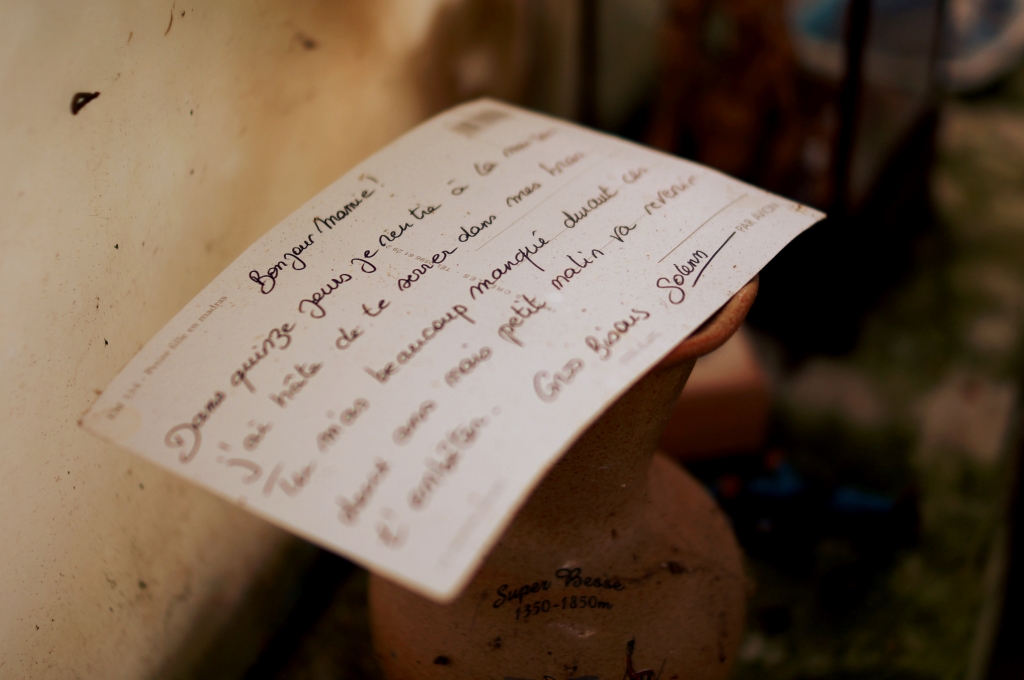 Bonjour Mamie !
Dans quinze jours je rentre à la maison
j'ai hâte de te serrer dans mes bras
Tu m'as beaucoup manqué durant ces
deux ans mais petit malin va revenir
t'embêter.
Gros bisous, Solenn
PAR AVION
fille en madras
Super Besse
1350-1850m